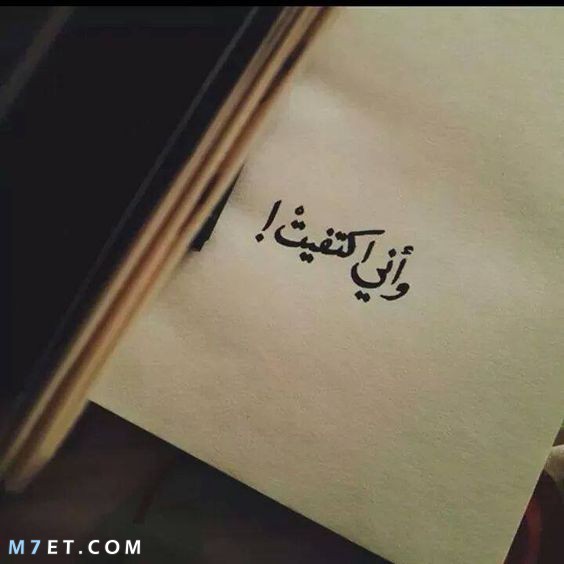 وأني اكتفيتْ !
M7ET.COM